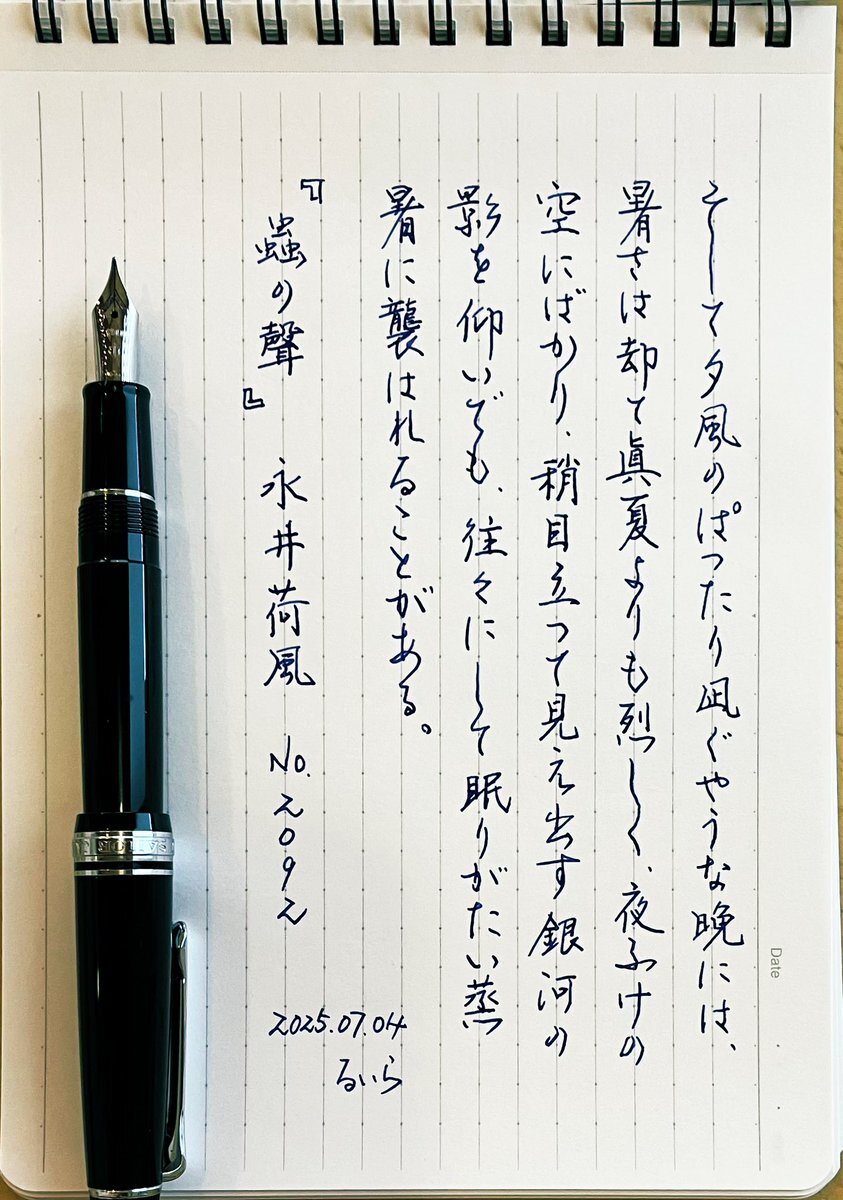 そして夕風のぱつたり凪ぐやうな晩には、
暑さは却て眞夏よりも烈しく、夜ふけの
空にばかり、稍目立つて見え出す銀河の
影を仰いでも、往々にして眠りがたい蒸
暑に襲はれることがある。
『蟲の聲』 永井荷風 No.2092
2025.07.04
るいら
Date